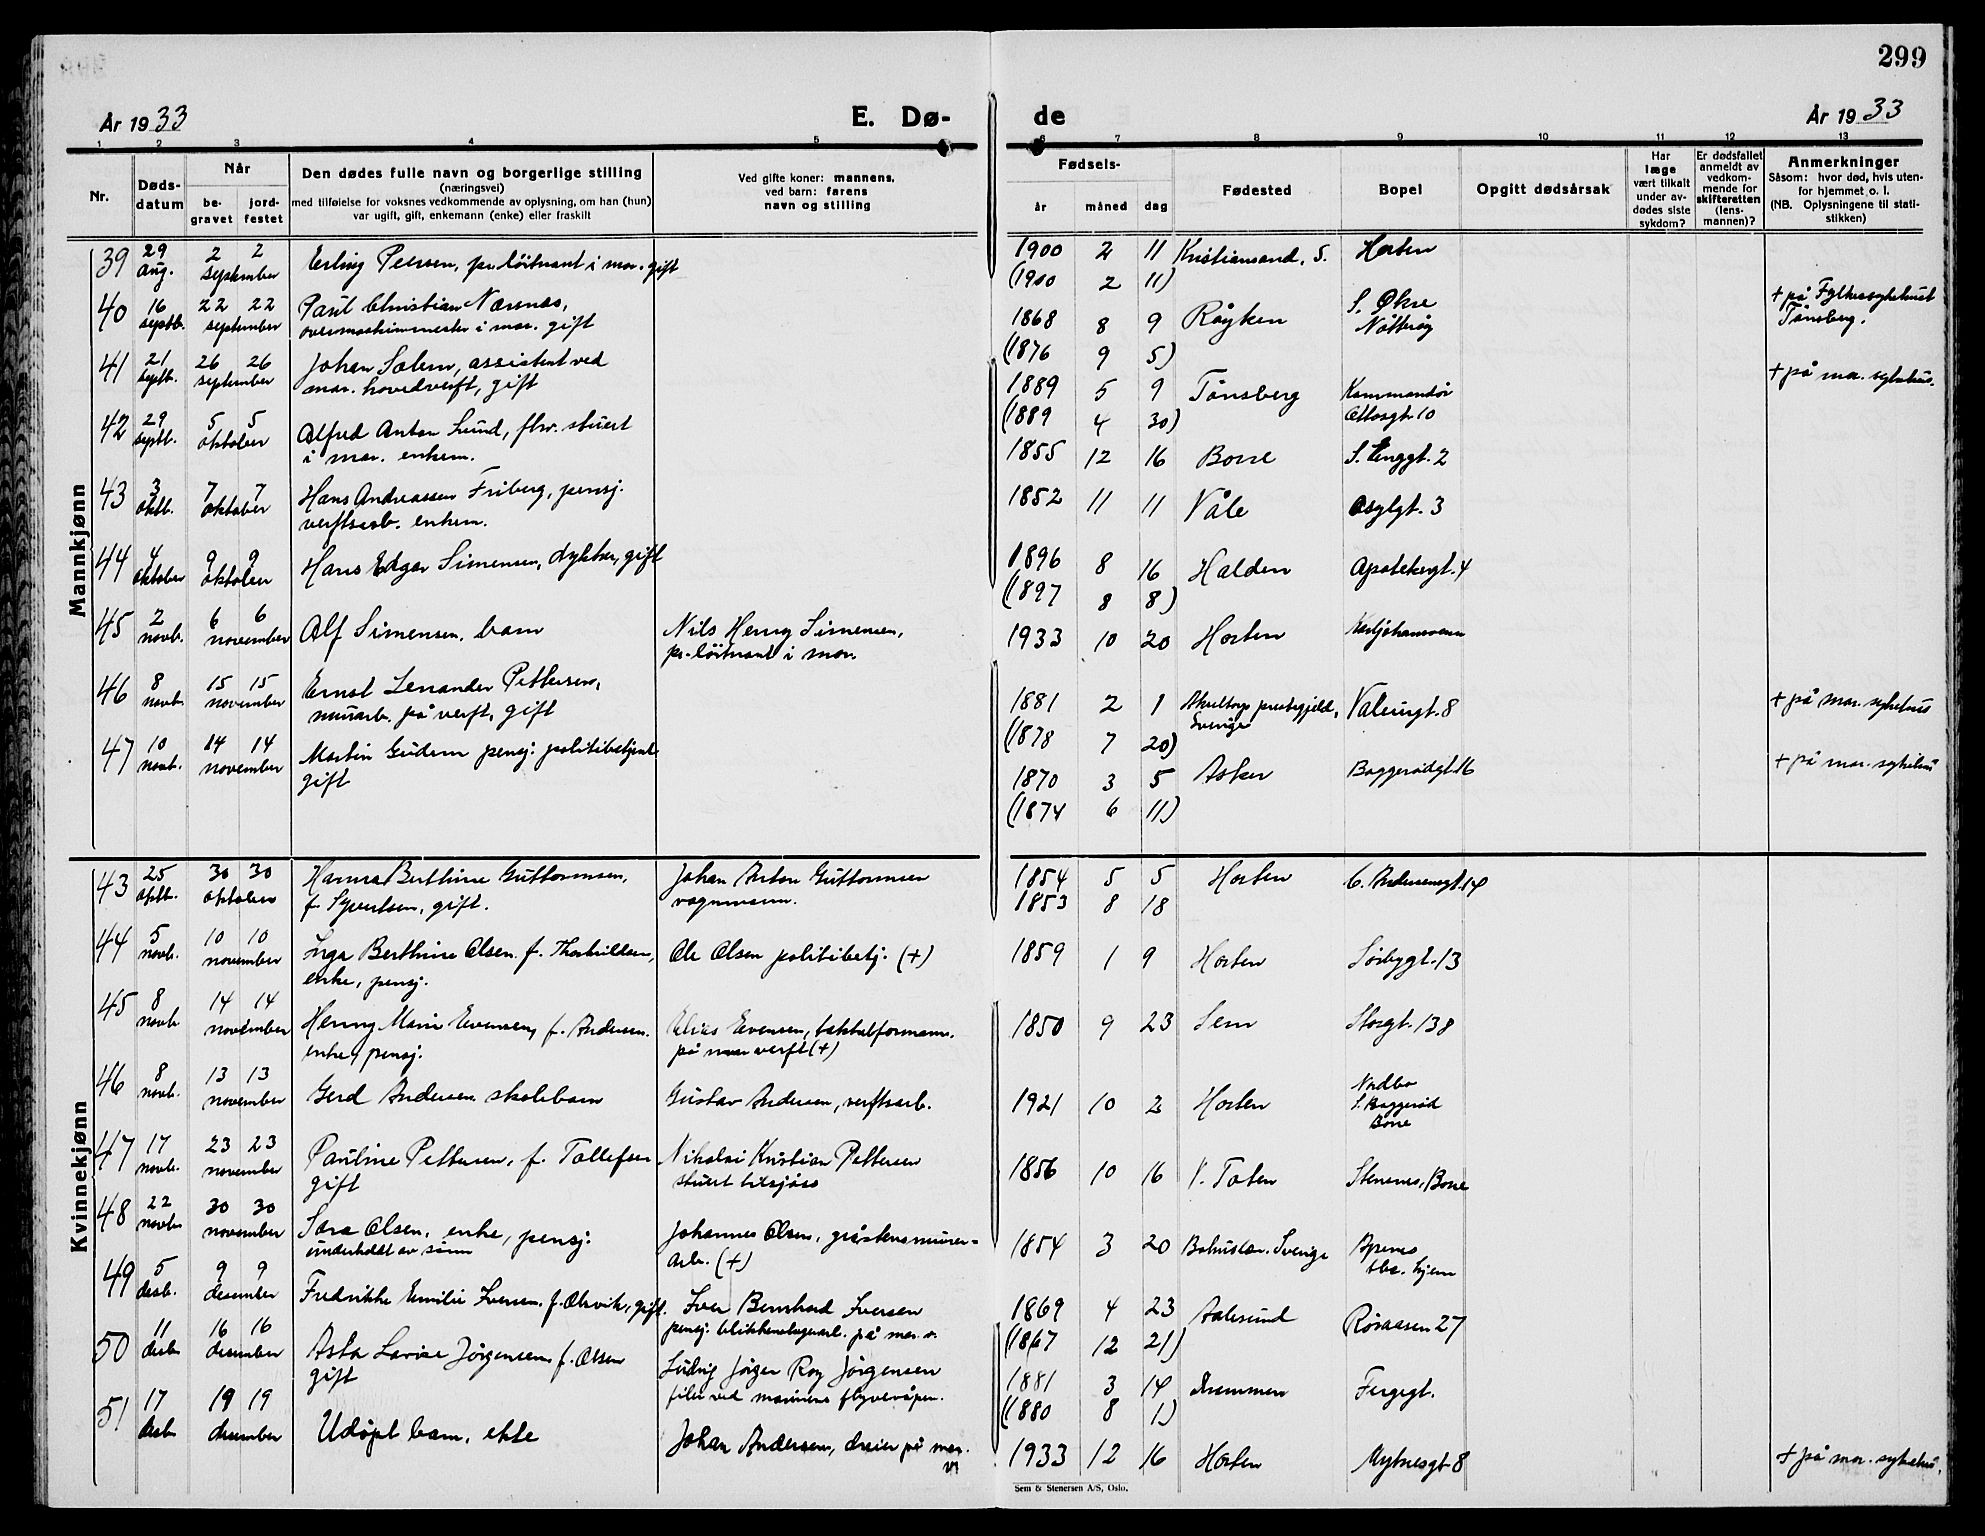 299
År 1933
E. Dø-
de
År 1933
1 2 3 4 5 6 7 8 9 10 11 12 13
Nr.
Døds-
datum
Når
be-
gravet
jord-
festet
Den dødes fulle navn og borgerlige stilling
(næringsvei)
med tilføielse for voksnes vedkommende av oplysning, om han (hun)
var ugift, gift, enkemann (enke) eller fraskilt
Ved gifte koner: mannens,
ved barn: farens
navn og stilling
Fødsels-
år måned dag
Fødested
Bopel
Opgitt dødsårsak
Har
læge
vært tilkalt
under av-
dødes siste
sykdom?
Er dødsfallet
anmeldt av
vedkom-
mende for
skifteretten
(lens-
mannen)?
Anmerkninger
Såsom: hvor død, hvis uten-
for hjemmet o. l.
(NB. Oplysningene til stati-
stikken)
Mannkjønn
39 29 2 2 Erling Petersen, pr. löitnant i mar. gift 1900 2 11 Kristiansand. S. Horten
aug. september (1900 2 11)
40 16 22 22 Paul Christian Næsnes, 1868 8 9 Röyken S. Økse + på Fylkessykehuset
septb. september overmaskinmester i mar. gift (1876 9 5) Nötteröy Tönsberg.
41 21 26 26 Johan Solem, assistent ved 1889 5 9 Tönsberg Kommandör + på mar. sykehus.
septb. september mar. hovedverft, gift (1889 4 30) Ottosgt. 10
42 29 5 5 Alfred Anton Lund, fhv. stuert 1855 12 16 Borre S. Enggt. 2
septb. oktober i mar. enkem.
43 3 7 7 Hans Andreassen Friberg, pensj. 1852 11 11 Våle Asylgt. 3
oktb. oktober verftsarb. enkem.
44 4 9 9 Hans Edgar Simensen, dykker, gift 1896 8 16 Halden Apotekergt. 4
oktober oktober (1897 8 8)
45 2 6 6 Alf Simensen, barn Nils Henry Simensen, 1933 10 20 Horten Karljohansvern
novb. november pr. löitnant i mar.
46 8 15 15 Ernst Lenander Pettersen, 1881 2 1 prestegjeld, Valeurgt. 8 + på mar. sykehus
novb. november murarb. på verft, gift (1878 7 20) Sverige
47 10 14 14 Martin Gudem pensj. politibetjent 1870 3 5 Asker Baggerødgt. 16 + på mar. sykehus
novb. november gift (1874 6 11)
Kvinnekjønn
43 25 30 30 Hanna Berthine Guttormsen, Johan Anton Guttormsen 1854 5 5 Horten C. Andersensgt. 14
oktb. oktober f. Syvertsen, gift. vognmann. 1853 8 18
44 5 10 10 Inga Berthine Olsen f. Thorkildsen, Ole Olsen politibetj. (+) 1859 1 9 Horten Sörbygt. 13
novb. november enke, pensj.
45 8 14 14 Henny Marie Evensen, f. Andersen. Elias Evensen, takkelformann. 1850 9 23 Sem Storgt. 138
novb. november enke, pensj. på mar verft (+)
46 8 13 13 Gerd Andersen skolebarn Gustav Andersen, verftsarb. 1921 10 2 Horten Nordbo
novb. november S. Baggeröd
Borre
47 17 23 23 Pauline Pettersen, f. Tollefsen Nikolai Kristian Pettersen 1856 10 16 V. Toten Stensnes, Borre
novb. november gift stuert tilsjøss
48 22 30 30 Sara Olsen, enke, pensj. Johannes Olsen, gråstensmurer- 1854 3 20 Bohuslen. Sverige Apenes
novb. november underholdt av sönn arb. (+) hjem
49 5 9 9 Fredrikke Emilie Iversen. f. Olsvik, gift. Iver Bernhard Iversen 1869 4 23 Aalesund Rösaasen 27
desb. desember pensj. blikkenslagerarb. på mar. v. (1867 12 21)
50 11 16 16 Asta Lovise Jörgensen f. Olsen Ludvig Jörger Roy Jörgensen 1881 3 14 Drammen Fergegt.
desb. desember gift filer ved marinens flyvevåpen. (1880 8 1)
51 17 19 19 Udöpt barn, ekte Johan Andersen, dreier på mar. 1933 12 16 Horten Mytnesgt 8 + på mar. sykehus.
desb. desember v.
Sem & Stenersen A/S, Oslo.